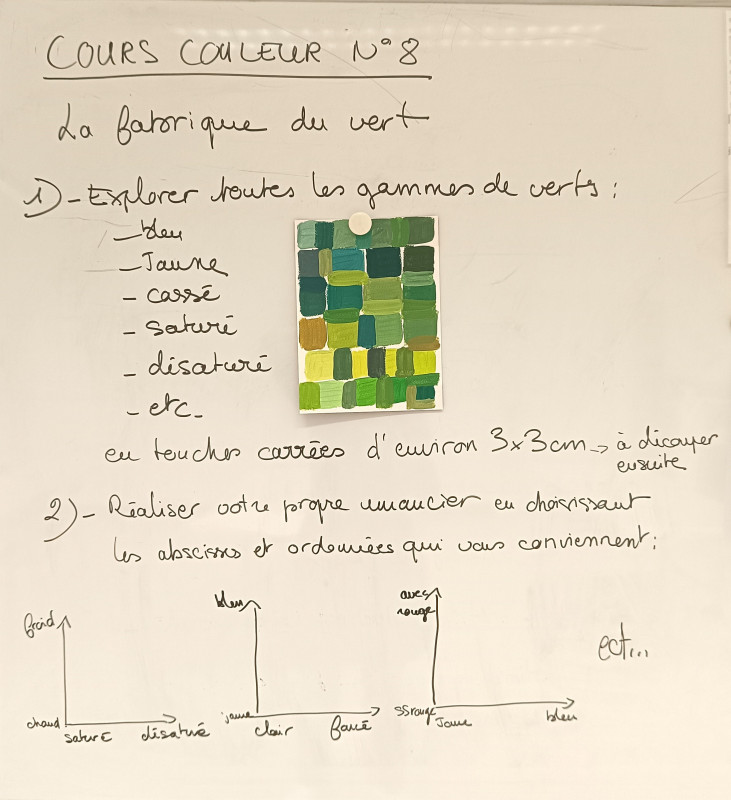 COURS COULEUR N°8
La fabrique du vert
1) - Explorer toutes les gammes de verts :
- bleu
- Jaune
- cassé
- saturé
- désaturé
- etc.
en touches carrées d'environ 3x3cm → à découper
ensuite
2) - Réaliser votre propre nuancier en choisissant
les abscisses et ordonnées qui vous conviennent :
froid
chaud
saturé désaturé
bleu
jaune
clair foncé
avec
rouge
ss rouge
Jaune bleu
ect...